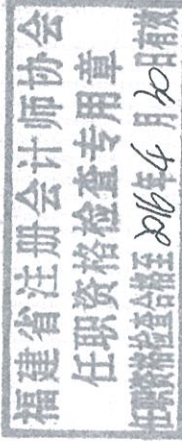 福建省注册会计师协会
任职资格检查专用章
任职资格检查合格至 年 月 日有效